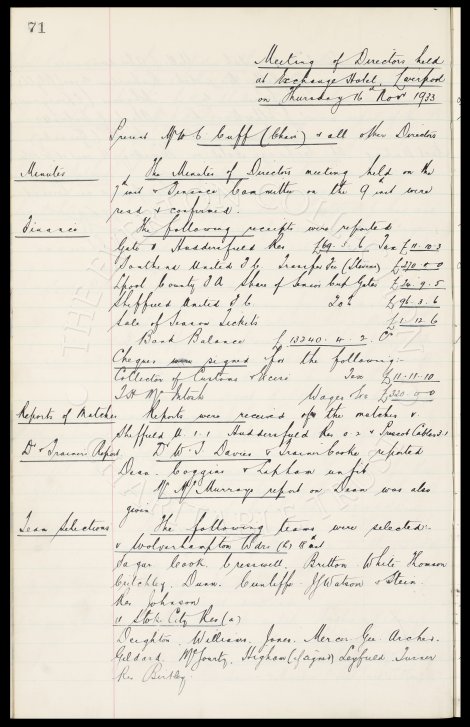 71
Meeting of Directors held
at Exchange Hotel, Liverpool
on Thursday 16th Novr 1933
Present Mr W C Cuff (Chair) & all other Directors
Minutes The Minutes of Directors meeting held on the
7th inst & Finance Committee on the 9th inst were
read & confirmed.
Finance The following receipts were reported
Gate v Huddersfield Res £69. 5. 6 Tax £11. 10. 3
Southend United F.C. Transfer Fee (Stevens) £270. 0. 0
Lpool County F A Share of Senior Cup Gates £24. 9. 5
Sheffield United F.C. 20% £96. 3. 6
Sale of Season Tickets £1. 12. 6
Bank Balance £13240. 4. 2. Cr
Cheques were signed for the following:-
Collector of Customs & Tax £11. 11. 10
T.H. McIntosh Wages &c £320. 0. 0
Reports of Matches Reports were received of the matches v.
Sheffield U. 1.1 Huddersfield Res 0.2 & Prescot Cables
Dr & Trainers Report Dr W. J. Davies & Trainer Cooke reported
Dean. Coggins & Lapham unfit
Mr McMurray's report on Dean was also
given.
Team Selections The following teams were selected:-
v Wolverhampton Wdrs (h) 18th inst
Sagar. Cook. Cresswell. Britton. White Thomson
Critchley. Dunn. Cunliffe. J Watson & Stein.
Res Johnson
v Stoke City Res (a)
Deighton. Williams. Jones. Mercer. Gee. Archer.
Geldard. McGourty. Higham (if signed) Leyfield. Turner
Res Bentley